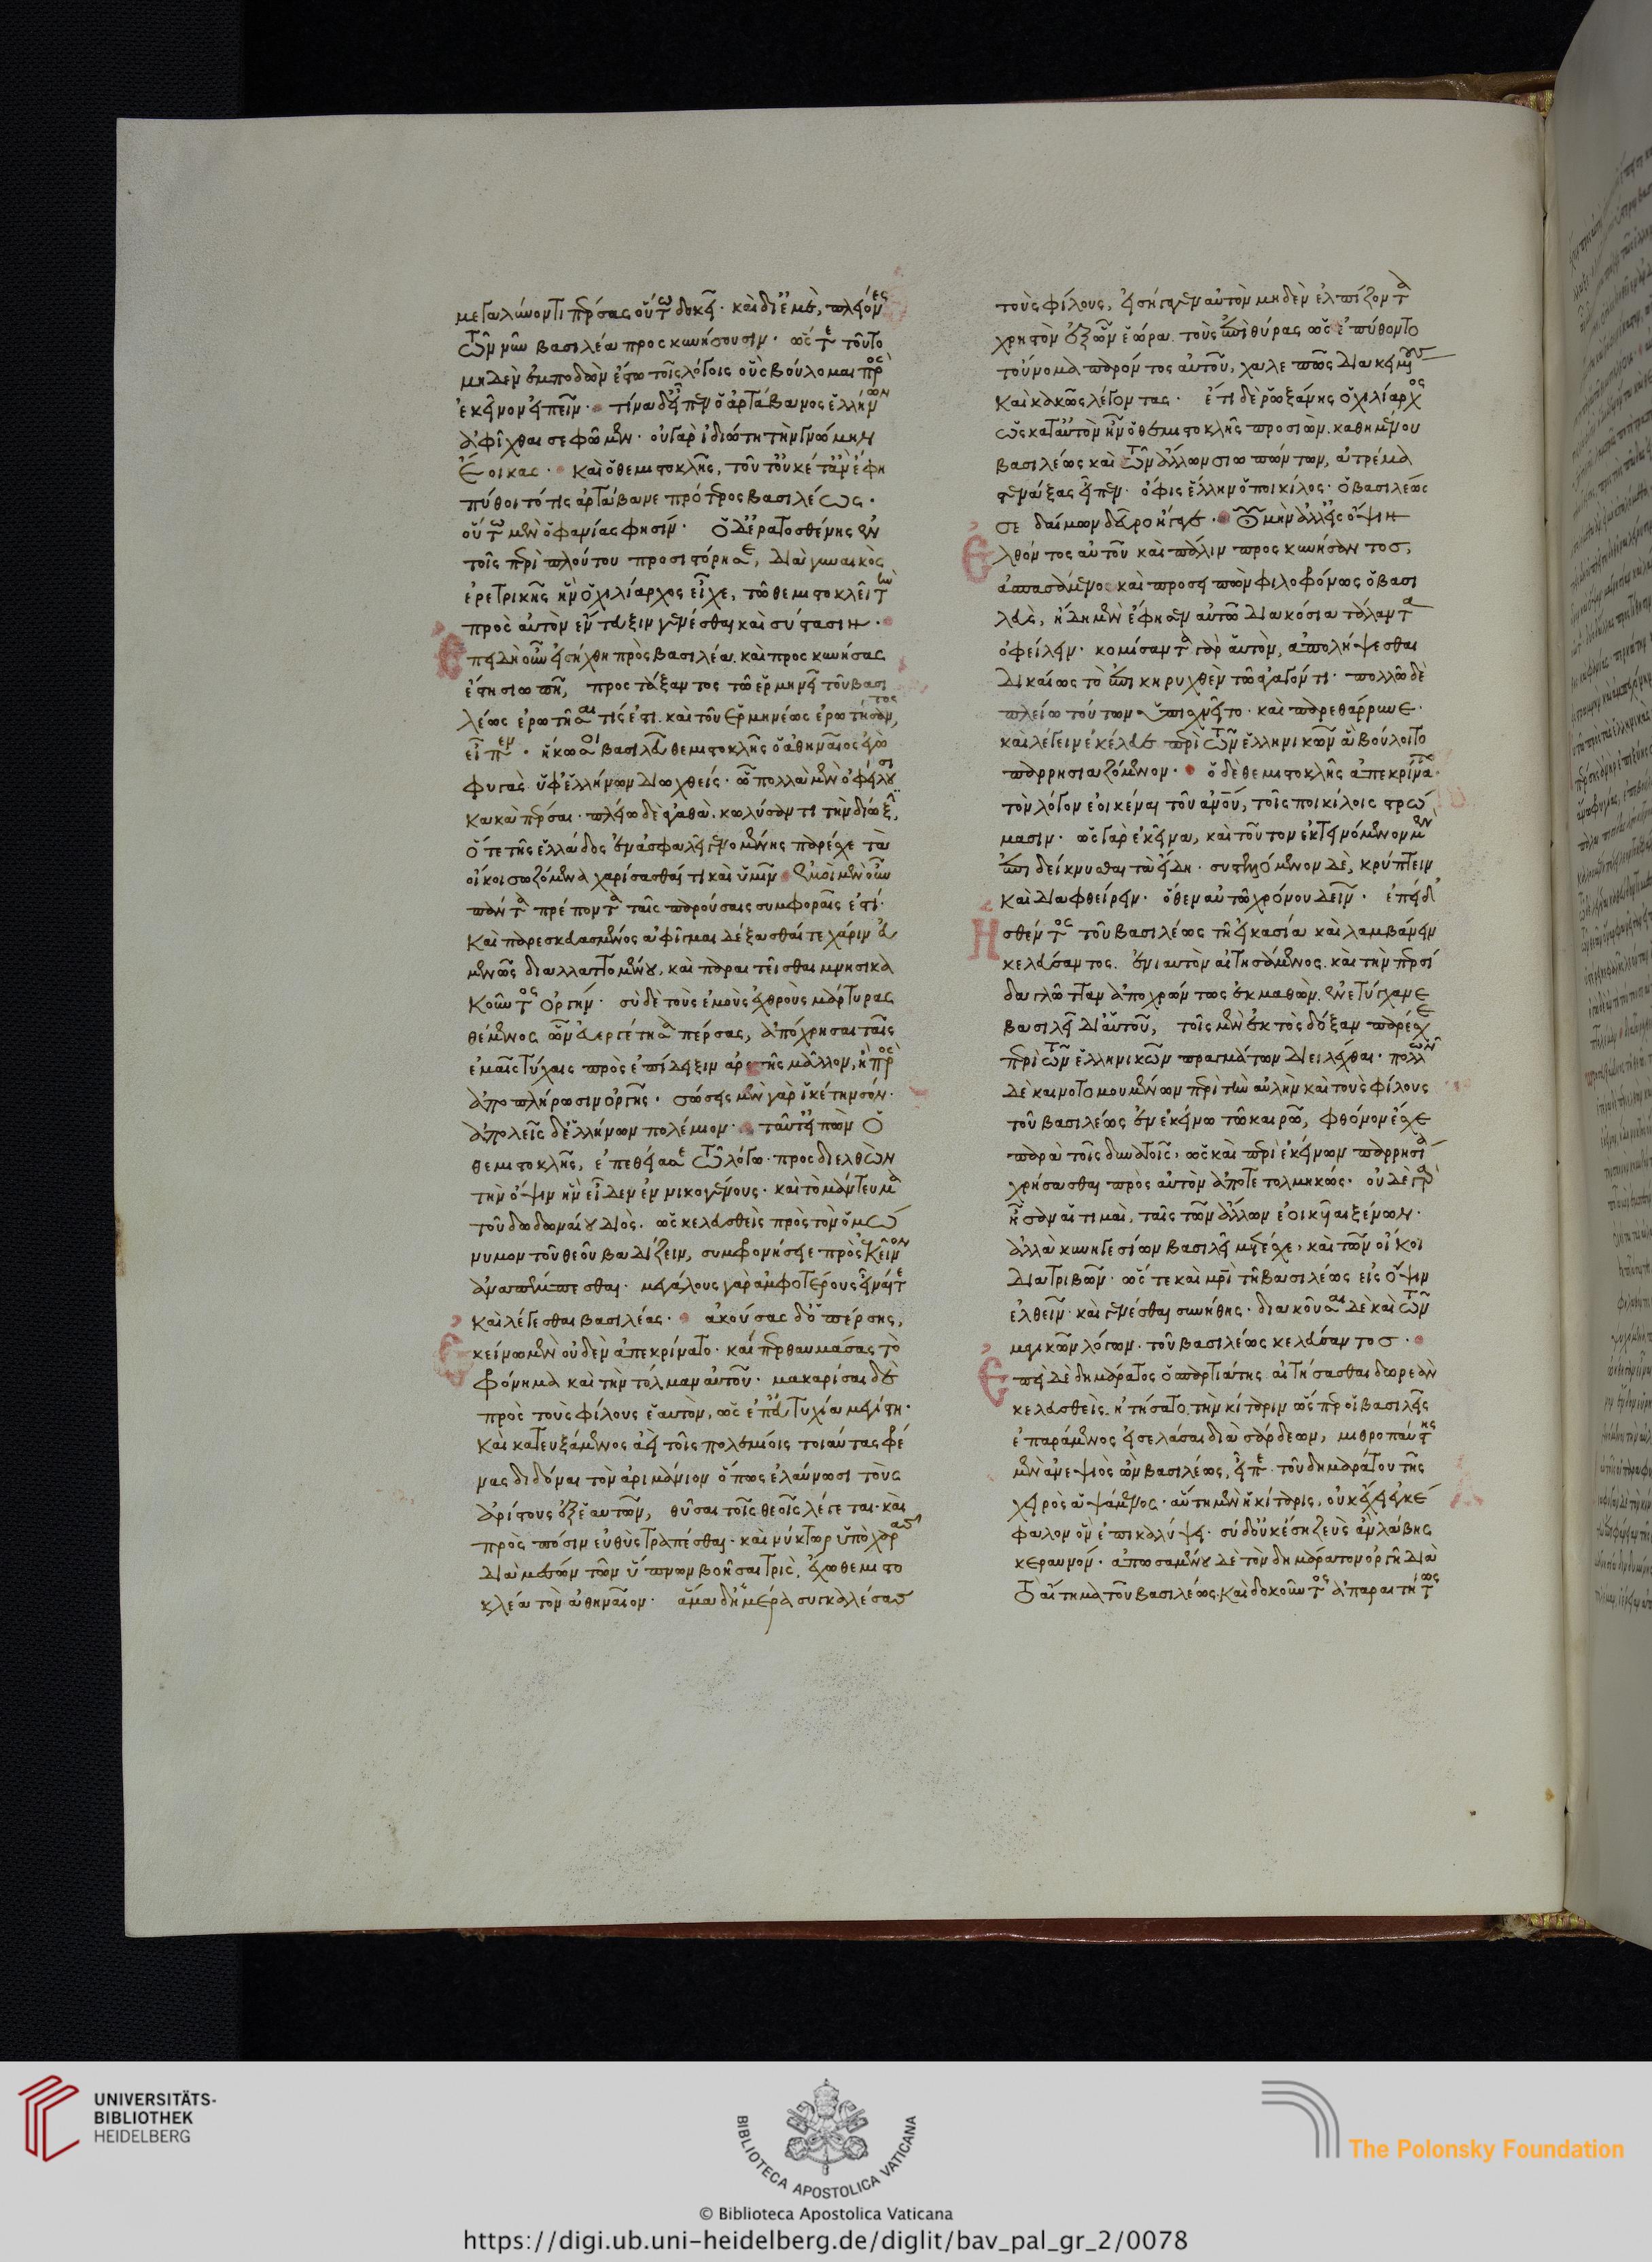 μεγαλύνοντι πέρσας οὕτω δοκεῖ· καὶ δι' ἐμὲ, πλείονες
τῶν νῦν βασιλέα προσκυνήσουσιν· ὥστε τοῦτο
μηδὲν ἐμποδὼν ἔστω τοῖς λόγοις οὓς βούλομαι πρὸς
ἐκεῖνον εἰπεῖν· τίνα δ' εἶπεν ὁ ἀρτάβανος ἑλλήνων
ἀφῖχθαι σε φῶμεν· οὐ γὰρ ἰδιώτη τὴν γνώμην
ἔοικας· καὶ ὁ θεμιστοκλῆς, τοῦτ' οὐκέτ' ἂν ἔφη
πύθοιτό τις ἀρτάβανε πρότερος βασιλέως·
οὕτω μὲν ὁ φανίας φησίν· ὁ δ' ἐρατοσθένης ἐν
τοῖς περὶ πλούτου προσιστόρησε, διὰ γυναικὸς
ἐρετρικῆς ἣν ὁ χιλίαρχος εἶχε, τῶ θεμιστοκλεῖ τὴν
πρὸς αὐτὸν ἔντευξιν γενέσθαι καὶ σύστασιν·
Ἐπεὶ δ' οὖν εἰσήχθη πρὸς βασιλέα. καὶ προσκυνήσας
ἔστη σιωπῆ, προστάξαντος τῶ ἑρμηνεῖ τοῦ βασι
λέως ἐρωτῆσαι τίς ἐστι. καὶ τοῦ ἑρμηνέως ἐρωτήσαντος,
εἶπεν· ἥκω σοι βασιλεῦ θεμιστοκλῆς ὁ ἀθηναῖος ἐγὼ
φυγὰς ὑφ' ἑλλήνων διωχθείς· ὧ πολλὰ μὲν ὀφείλουσι
κακὰ πέρσαι· πλείω δὲ ἀγαθὰ. κωλύσαντι τὴν δίωξιν,
ὅτε τῆς ἑλλάδος ἐν ἀσφαλεῖ γενομένης παρέσχε τὰ
οἴκοι σωζόμενα χαρίσασθαί τι καὶ ὑμῖν· ἐμοὶ μὲν οὖν
πάντα πρέποντα ταῖς παρούσαις συμφοραῖς ἐστί·
καὶ παρεσκευασμένος ἀφῖγμαι δέξασθαί τε χάριν εὐ
μενῶς διαλλαττομένου, καὶ παραιτεῖσθαι μνησικα
κοῦντος ὀργήν· σὺ δὲ τοὺς ἐμοὺς ἐχθροὺς μάρτυρας
θέμενος ὧν εὐεργέτησα πέρσας, ἀπόχρησαι ταῖς
ἐμαῖς τύχαις πρὸς ἐπίδειξιν ἀρετῆς μᾶλλον, ἢ πρὸς
ἀποπλήρωσιν ὀργῆς· σώσεις μὲν γὰρ ἱκέτην σόν·
ἀπολεῖς δ' ἑλλήνων πολέμιον· ταῦτ' εἰπὼν ὁ
θεμιστοκλῆς, ἐπεθείασε τῶ λόγω· προσδιελθὼν
τὴν ὄψιν ἣν εἶδεν ἐν νικογένους· καὶ τὸ μάντευμα
τοῦ δωδωναίου διὸς· ὡς κελευσθεὶς πρὸς τὸν ὁμώ
νυμον τοῦ θεοῦ βαδίζειν, συμφρονήσειε πρὸς ἐκεῖνον
ἀναπέμπεσθαι· μεγάλους γὰρ ἀμφοτέρους εἶναί τε
καὶ λέγεσθαι βασιλέας· ἀκούσας δ' ὁ πέρσης,
Ἐκείνω μὲν οὐδὲν ἀπεκρίνατο· καίπερ θαυμάσας τὸ
φρόνημα καὶ τὴν τόλμαν αὐτοῦ· μακαρίσας δὲ
πρὸς τοὺς φίλους ἑαυτὸν, ὡς ἐπ' εὐτυχία μεγίστη·
καὶ κατευξάμενος ἀεὶ τοῖς πολεμίοις τοιαύτας φρέ
νας διδόναι τὸν ἀριμάνιον ὅπως ἐλαύνωσι τοὺς
ἀρίστους ἐξ ἑαυτῶν, θῦσαι τοῖς θεοῖς λέγεται· καὶ
πρὸς πόσιν εὐθὺς τραπέσθαι· καὶ νύκτωρ ὑπὸ χαρᾶς
διὰ μέσων τῶν ὕπνων βοῆσαι τρὶς, ἔχω θεμιστο
κλέα τὸν ἀθηναῖον· ἅμα δ' ἡμέρα συγκαλέσας
τοὺς φίλους, εἰσήγαγεν αὐτὸν μηδὲν ἐλπίζοντα
χρηστὸν ἐξ ὧν ἑώρα. τοὺς ἐπὶ θύρας ὡς ἐπύθοντο
τοὔνομα παρόντος αὐτοῦ, χαλεπῶς διακειμένους
καὶ κακῶς λέγοντας· ἔτι δὲ ῥωξάνης ὁ χιλίαρχος
ὡς κατ' αὐτὸν ἦν ὁ θεμιστοκλῆς προσιὼν. καθημένου
βασιλέως καὶ τῶν ἄλλων σιωπώντων, ἀτρέμα
στενάξας εἶπεν· ὄφις ἕλλην ὁ ποικίλος· ὁ βασιλέως
σε δαίμων δεῦρο ἤγαγε· οὐ μὴν ἀλλ' εἰς ὄψιν
Ἐλθόντος αὐτοῦ καὶ πάλιν προσκυνήσαντος,
ἀσπασάμενος καὶ προσειπὼν φιλοφρόνως ὁ βασι
λεὺς, ἤδη μὲν ἔφησεν αὐτῶ διακόσια τάλαντα
ὀφείλειν· κομίσαντα γὰρ αὑτὸν, ἀπολήψεσθαι
δικαίως τὸ ἐπικηρυχθὲν τῶ ἀγαγόντι· πολλῶ δὲ
πλείω τούτων ὑπισχνεῖτο· καὶ παρεθάρρυνε·
καὶ λέγειν ἐκέλευσε περὶ τῶν ἑλληνικῶν ἃ βούλοιτο
παρρησιαζόμενον· ὁ δὲ θεμιστοκλῆς ἀπεκρίνατο
τὸν λόγον ἐοικέναι τοῦ ἀνθρώπου, τοῖς ποικίλοις στρώ
μασιν· ὡς γὰρ ἐκεῖνα, καὶ τοῦτον ἐκτεινόμενον μὲν
ἐπιδείκνυσθαι τὰ εἴδη· συστελλόμενον δὲ, κρύπτειν
καὶ διαφθείρειν· ὅθεν αὐτῶ χρόνου δεῖν· ἐπεὶ δ'
Ἡσθέντος τοῦ βασιλέως τῆ εἰκασία καὶ λαμβάνειν
κελεύσαντος. ἐνιαυτὸν αἰτησάμενος. καὶ τὴν περσί
δα γλῶτταν ἀποχρώντως ἐκμαθὼν. ἐνετύγχανε
βασιλεῖ δι' αὑτοῦ, τοῖς μὲν ἐκτὸς δόξαν παρέσχε
περὶ τῶν ἑλληνικῶν πραγμάτων διειλέχθαι· πολλῶν
δὲ καινοτομουμένων περὶ τὴν αὐλὴν καὶ τοὺς φίλους
τοῦ βασιλέως ἐν ἐκείνω τῶ καιρῶ, φθόνον ἔσχε
παρὰ τοῖς δυνατοῖς, ὡς καὶ περὶ ἐκείνων παρρησία
χρήσασθαι πρὸς αὐτὸν ἀποτετολμηκώς· οὐδὲ γὰρ
ἦσαν αἱ τιμαὶ, ταῖς τῶν ἄλλων ἐοικυῖαι ξένων·
ἀλλὰ κυνηγεσίων βασιλεῖ μετέσχε, καὶ τῶν οἴκοι
διατριβῶν· ὥστε καὶ μητρὶ τῆ βασιλέως εἰς ὄψιν
ἐλθεῖν· καὶ γενέσθαι συνήθης· διακοῦσαι δὲ καὶ τῶν
μαγικῶν λόγων. τοῦ βασιλέως κελεύσαντος·
Ἐπεὶ δὲ δημάρατος ὁ σπαρτιάτης αἰτήσασθαι δωρεὰν
κελευσθεὶς. ἠτήσατο τὴν κίταριν ὥσπερ οἱ βασιλεῖς
ἐπαράμενος εἰσελάσαι διὰ σάρδεων, μιθροπαύστης
μὲν ἀνεψιὸς ὢν βασιλέως, εἶπε τοῦ δημαράτου τῆς
χειρὸς ἁψάμενος· αὕτη μὲν ἡ κίταρις, οὐκ ἔχει ἐγκέ
φαλον ὃν ἐπικαλύψει· σὺ δ' οὐκ ἔση ζεὺς ἂν λάβης
κεραυνόν· ἀπωσαμένου δὲ τὸν δημάρατον ὀργῆ διὰ
τὸ αἴτημα τοῦ βασιλέως. καὶ δοκοῦντος ἀπαραιτήτως
UNIVERSITÄTS-
BIBLIOTHEK
HEIDELBERG
BIBLIOTECA APOSTOLICA VATICANA
The Polonsky Foundation
© Biblioteca Apostolica Vaticana
https://digi.ub.uni-heidelberg.de/diglit/bav_pal_gr_2/0078